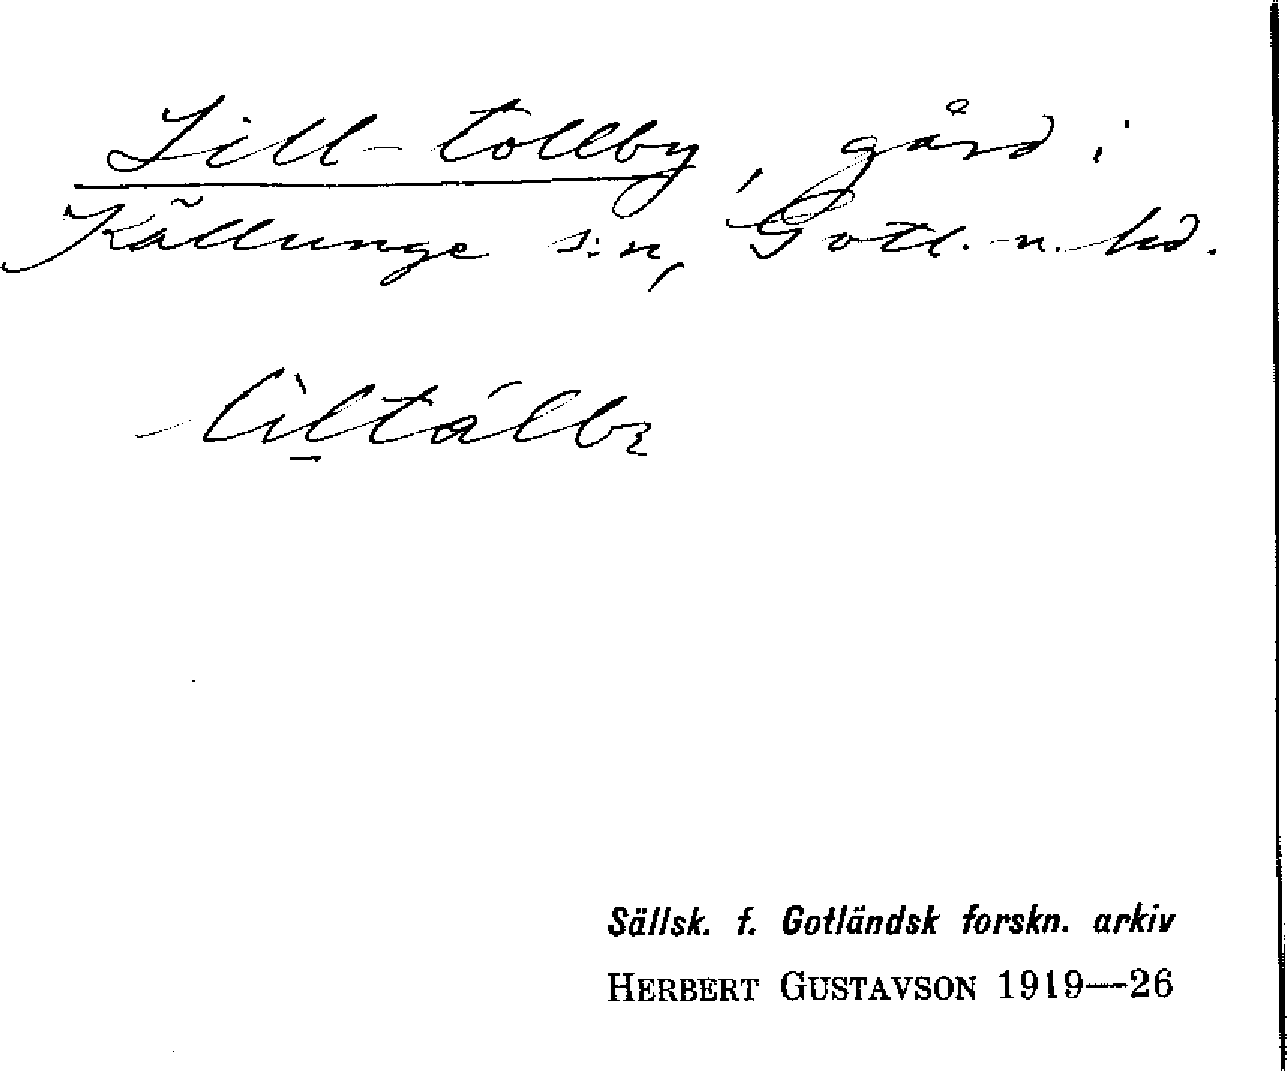 Lill-tollby, gård i
Källunge s:n, Gotl. n. hd.
lìltálbɛ
Sällsk. f. Gotländsk forskn. arkiv
HERBERT GUSTAVSON 1919—26